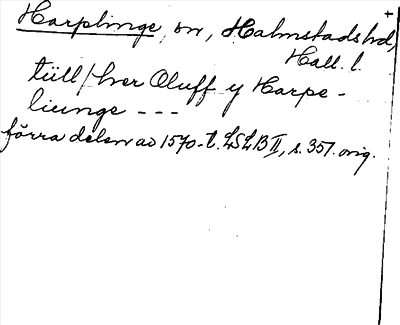 +
Harplinge, sn, Halmstads hd,
Hall. l.
tüll / her Oluff y Harpe-
liunge ---
förra delen av 1570-t. LSLB II, s. 357. orig.